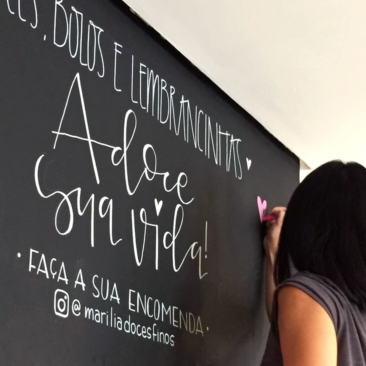 BOLOS E LEMBRANCINHAS
Adoce
sua vida!
• FAÇA A SUA ENCOMENDA •
@mariliadocesfinos